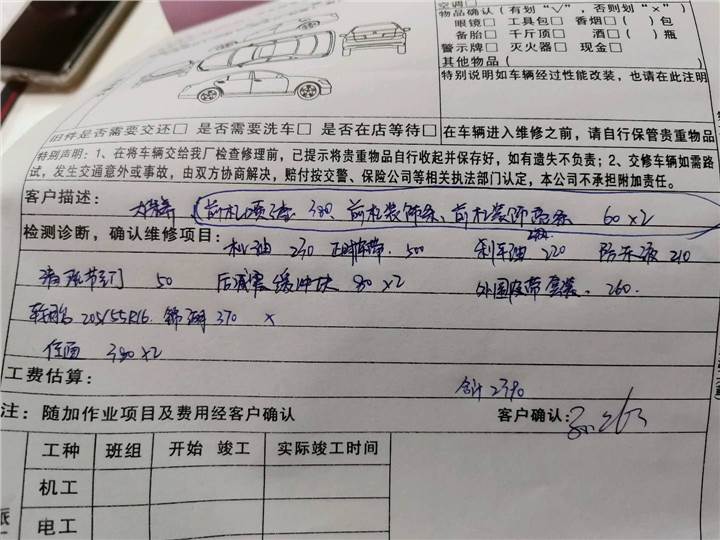 空调□
物品确认(有划“√”,否则划“×”)
眼镜□ 工具包□ 香烟□( )包
备胎□ 千斤顶□ 酒□( )瓶
警示牌□ 灭火器□ 现金□
其他物品(
特别说明如车辆经过性能改装,也请在此注明
旧件是否需要交还□ 是否需要洗车□ 是否在店等待□ 在车辆进入维修之前,请自行保管贵重物品
特别声明:1、在将车辆交给我厂检查修理前,已提示将贵重物品自行收起并保存好,如有遗失不负责;2、交修车辆如需路
试,发生交通意外或事故,由双方协商解决,赔付按交警、保险公司等相关执法部门认定,本公司不承担附加责任。
客户描述: 大保养 前机顶漆 380 前杠装饰条、前杠装饰 60×2
检测诊断,确认维修项目: 机油 230 正时套带 500 刹车油 220 防冻液 210
清洗节门 50 后减震缓冲块 80×2 外围皮带套装 260
轮胎 205/55R16 锦湖 370 ×
380×2
工费估算: 合计 2390
注: 随加作业项目及费用经客户确认 客户确认:
工种 班组 开始 竣工 实际竣工时间
机工
派
电工